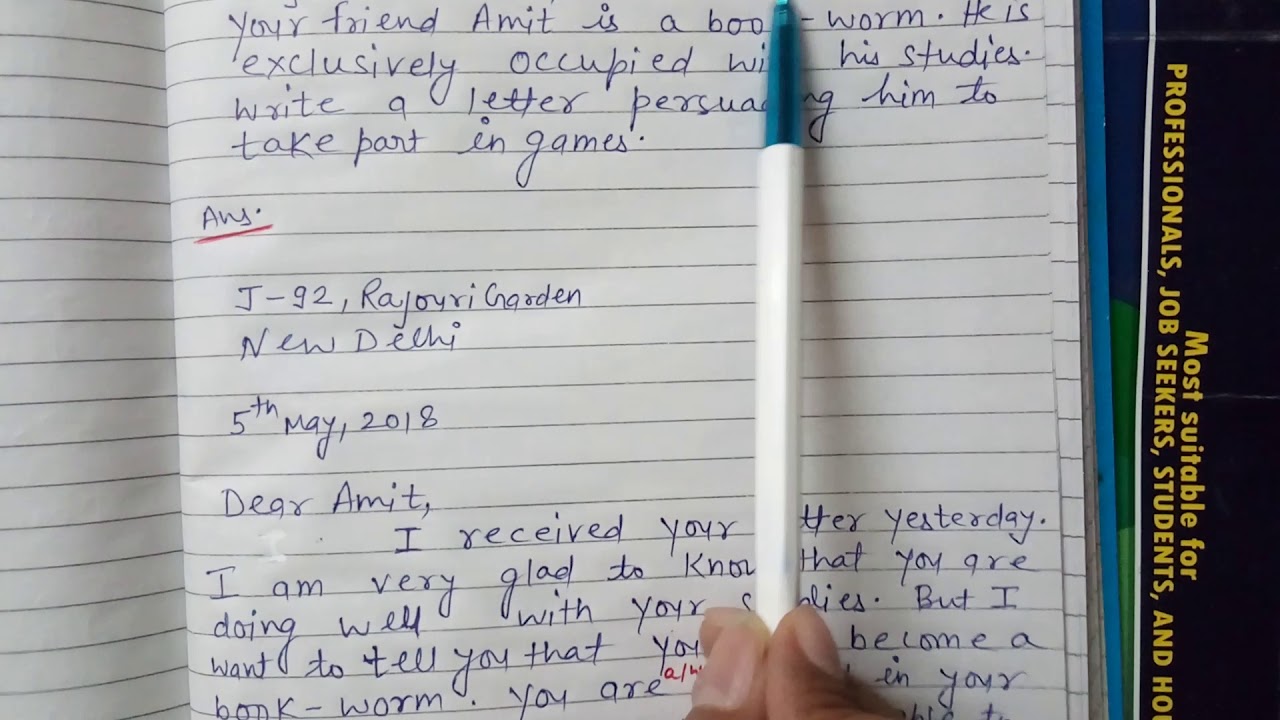 your friend Amit is a worm. He is
exclusively occupied his studies.
write a letter him to
take part in games.
Ans.
J-92, Rajouri Garden
New Delhi
5th May, 2018
Dear Amit,
I received your yesterday.
I am very glad to that you are
doing well with your But I
want to tell you that become a
book-worm. You are in your
PROFESSIONALS, JOB SEEKERS, STUDENTS, AND
Most suitable for